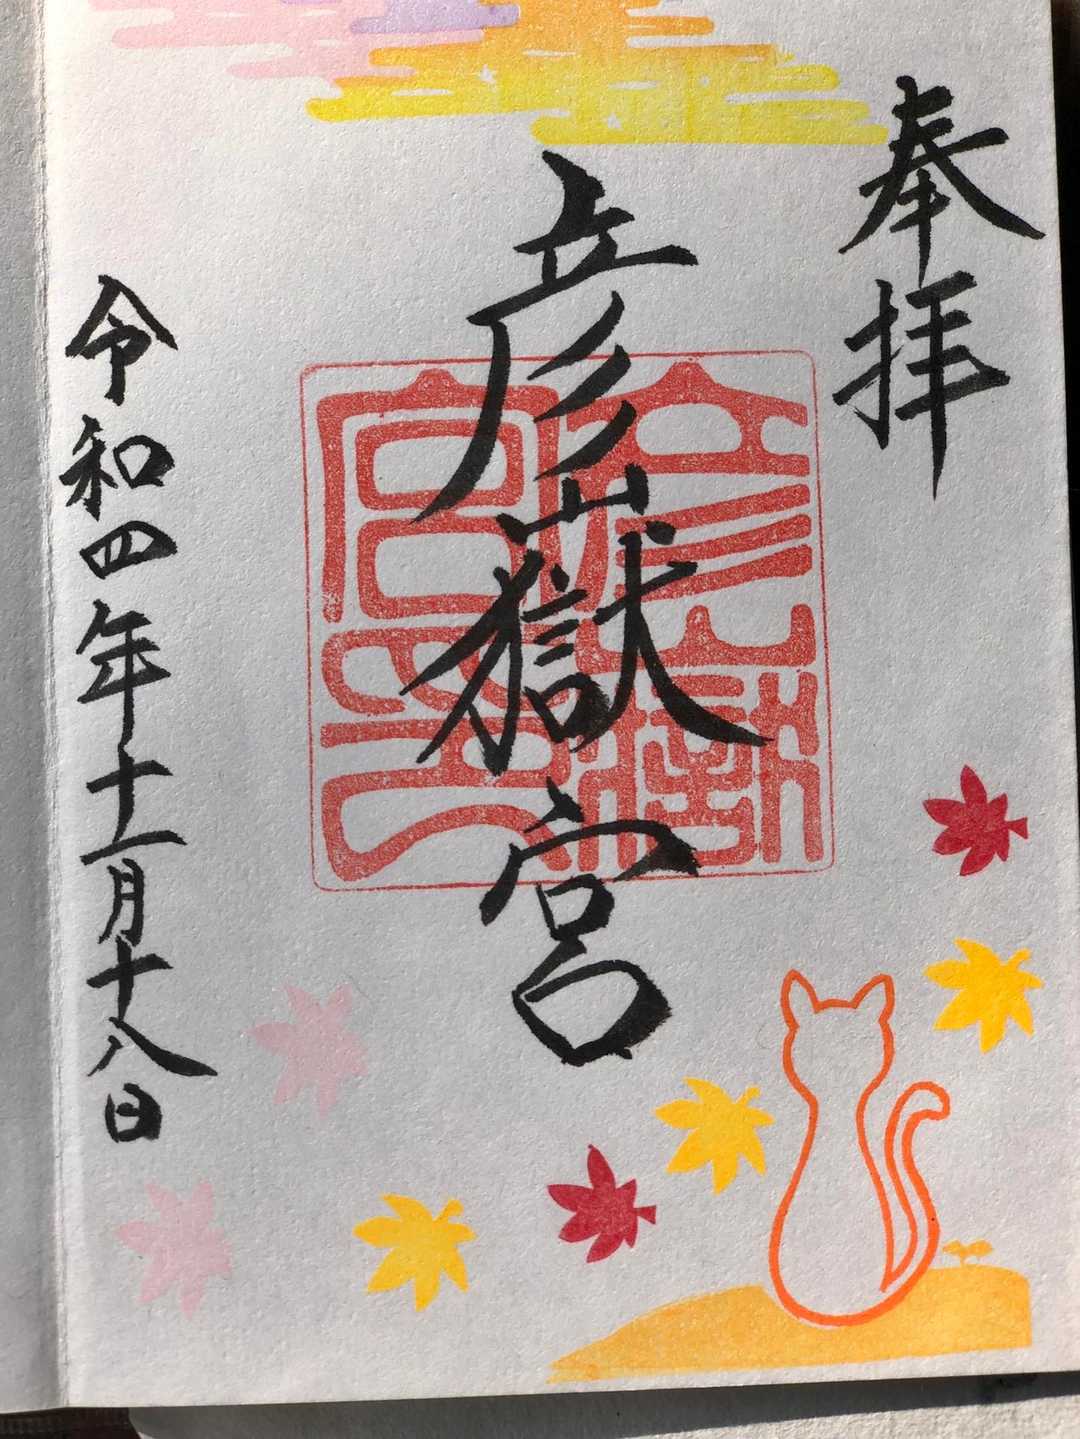 奉拝
彦嶽宮
令和四年十一月十八日